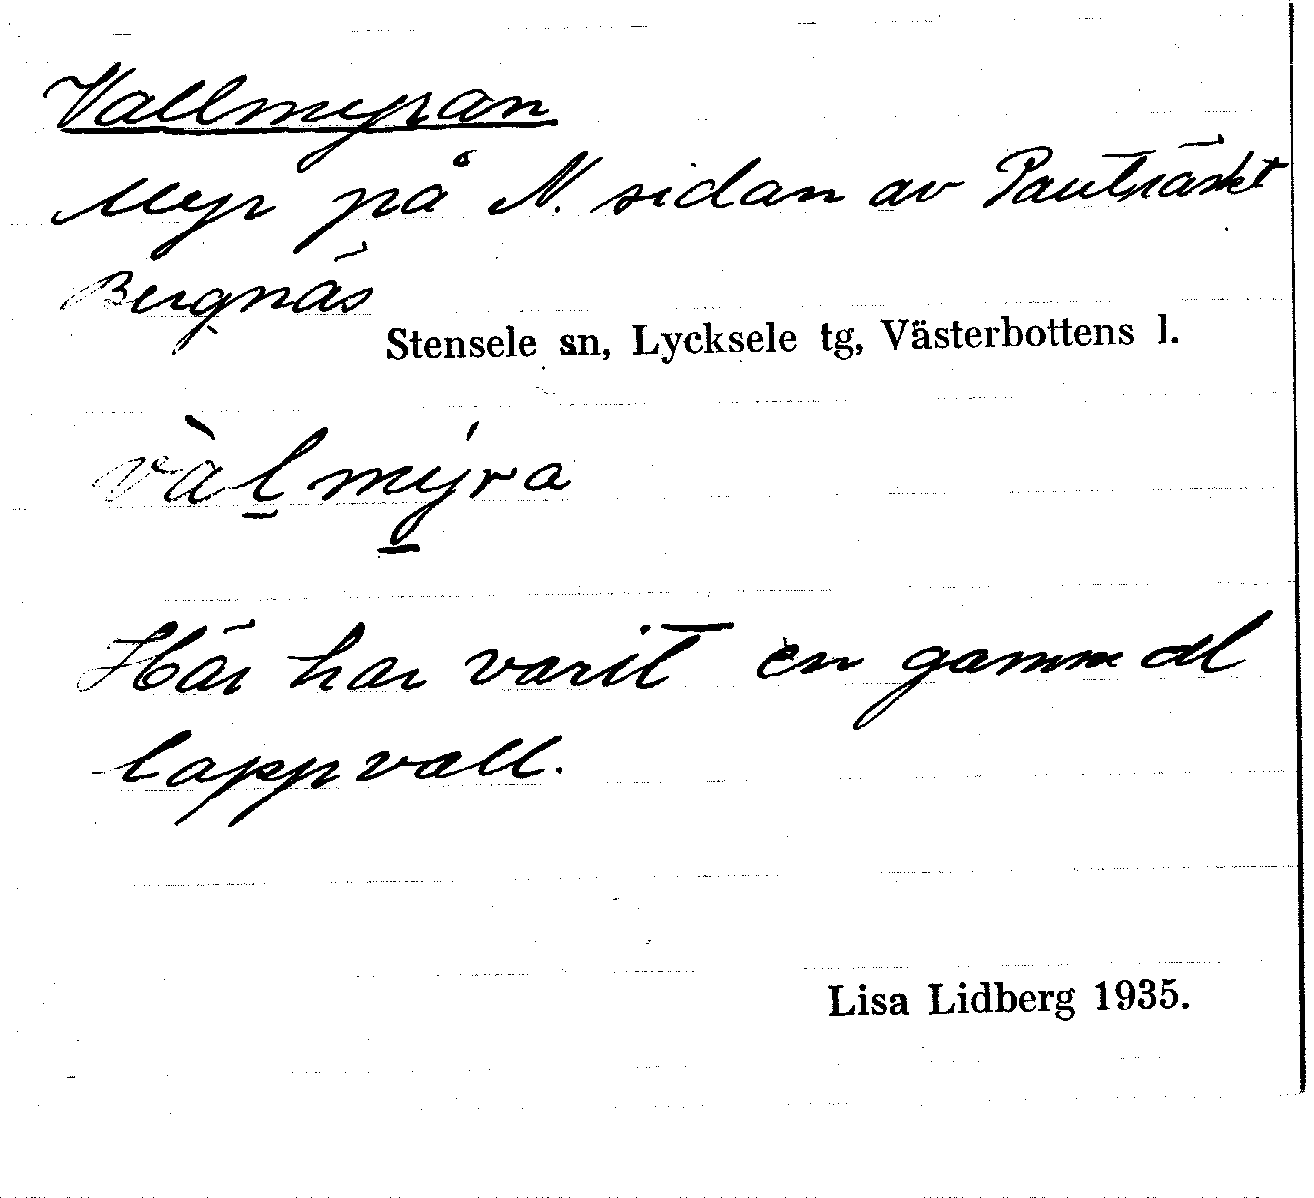 Vallmyran
Myr på N. sidan av Pauträsket
Bergnäs
Stensele sn, Lycksele tg, Västerbottens l.
vàl̲mý̲ra
Här har varit en gammal
lappvall.
Lisa Lidberg 1935.